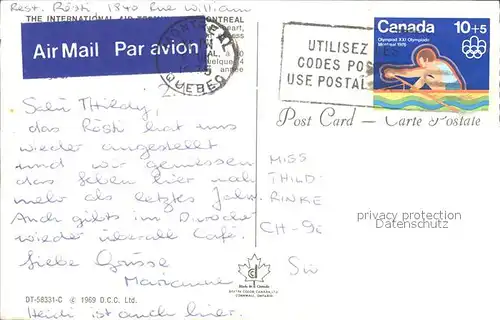 Rest. Rösti, 1840 Rue William
THE INTERNATIONAL AIR MONTREAL
Air Mail Par avion
MONTREAL
QUEBEC
UTILISEZ
CODES POS
USE POSTAL
Canada 10+5
Olympiad XXI Olympiade
Montréal 1976
Post Card — Carte Postale
Salü Thildy,
das Rösti hat uns
wieder angestellt
und wir geniessen
das Leben hier noch
mehr als letztes Jahr.
Auch gibt's im
wieder überall Café.
Liebe Grüsse
Marianne
Heidi ist auch hier.
MISS
THILD
RINKE
CH-96
Siv
privacy protection
Datenschutz
DT-58331-C © 1969 D.C. Ltd.